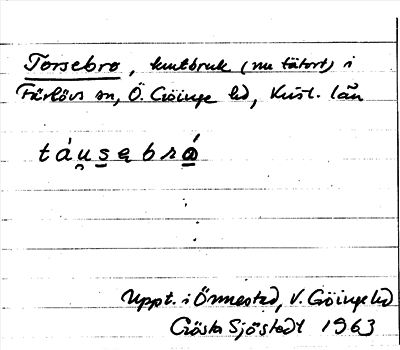 Torsebro, krutbruk (nu tätort) i
Färlövs sn, Ö. Göinge hd, Krist. län
táu̯sa̤brǻ
Uppt. i Önnestad, V. Göinge hd
Gösta Sjöstedt 1963